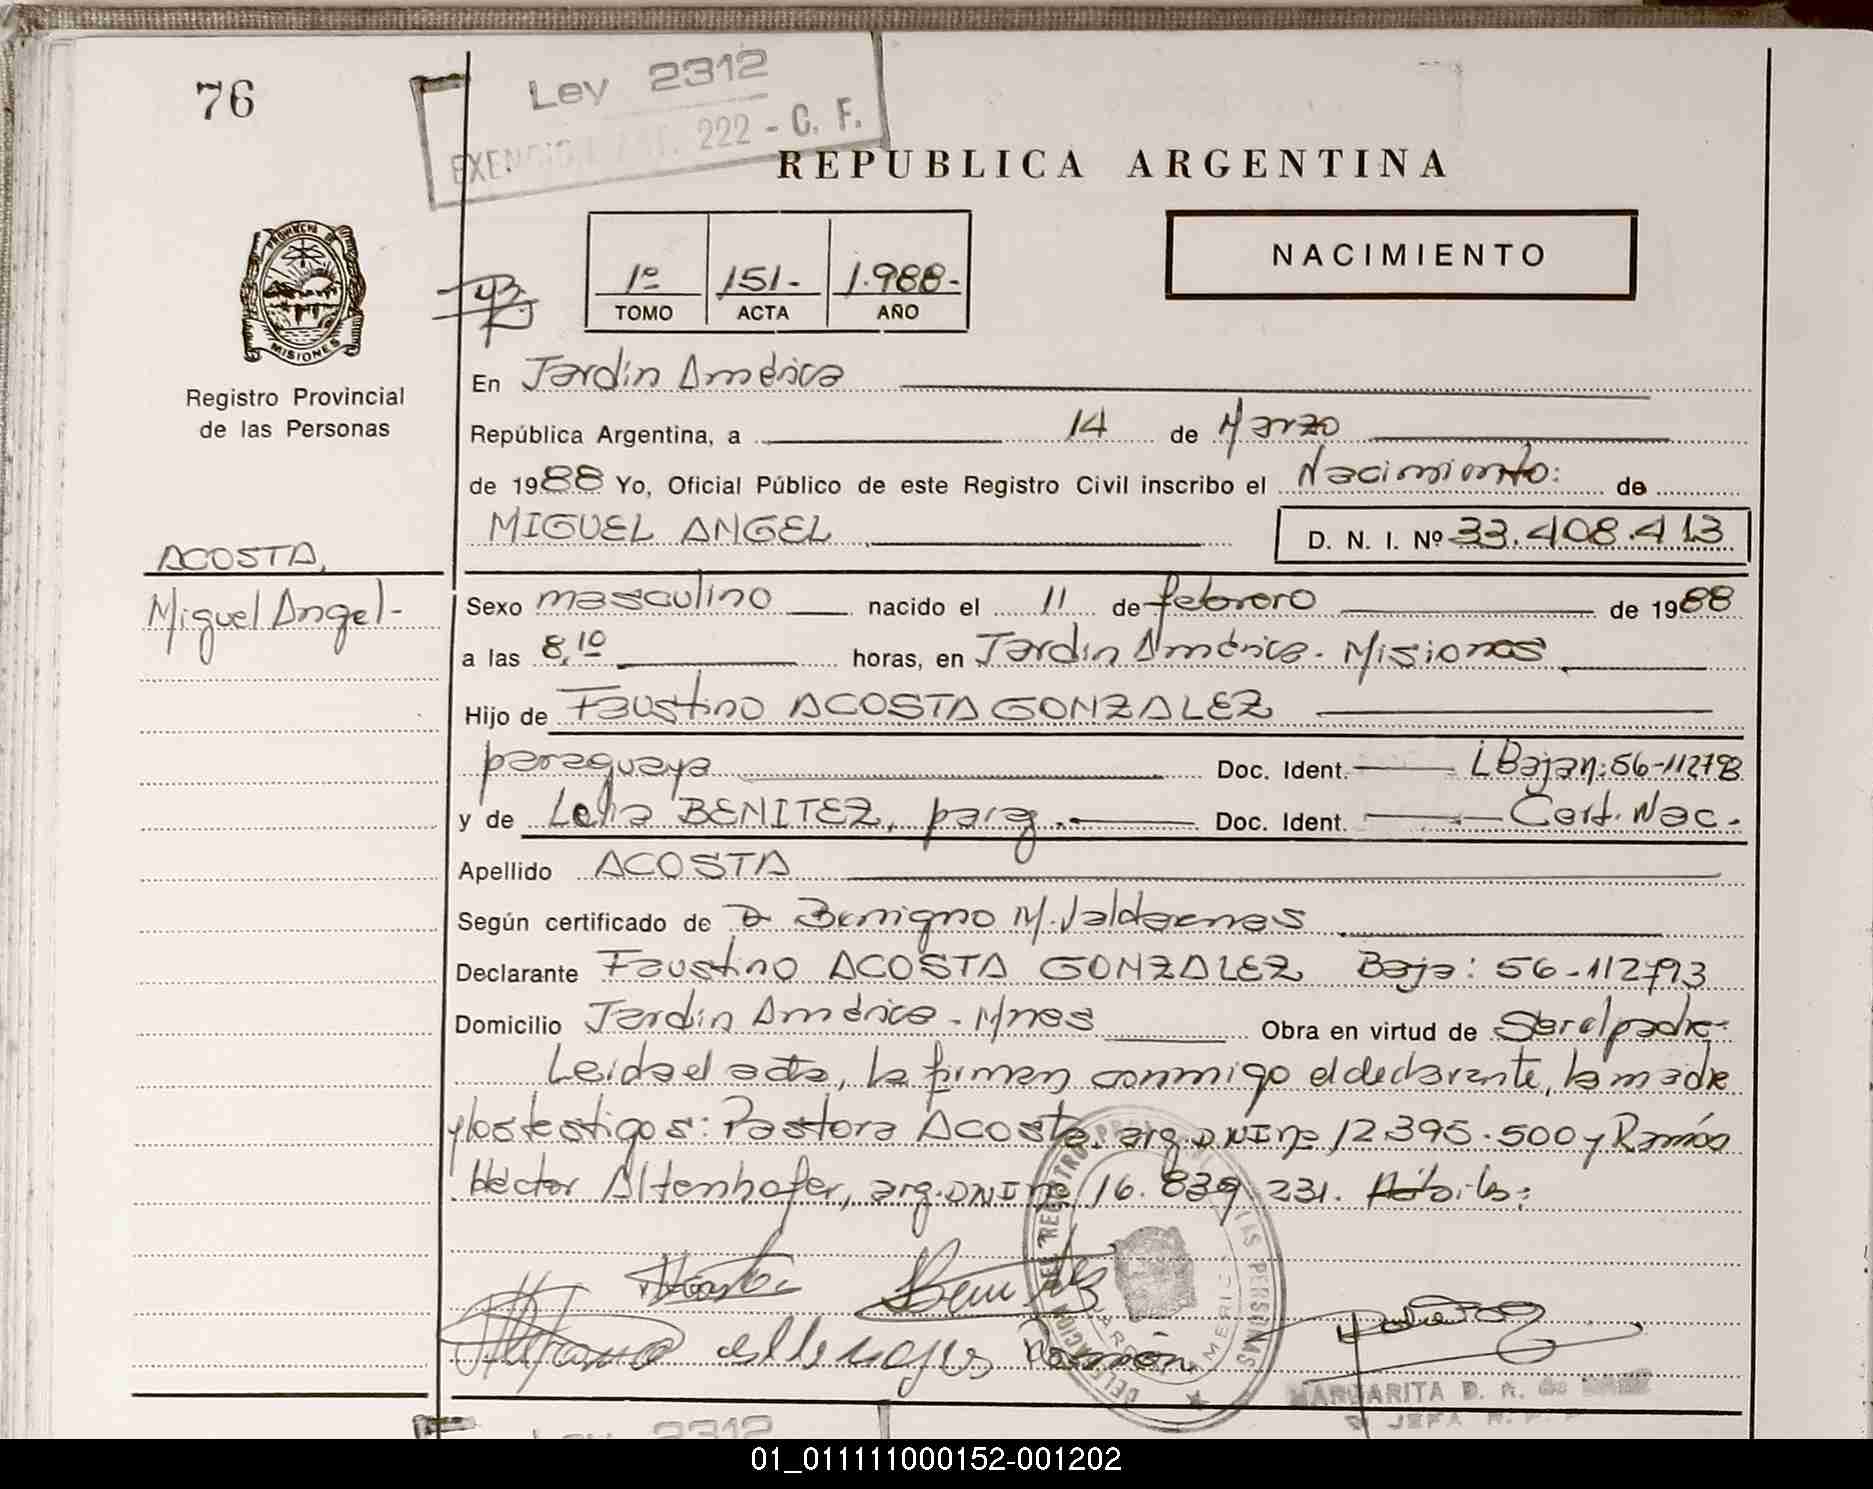 76
Ley 2312
EXENCION ART. 222 - C. F.
REPUBLICA ARGENTINA
PROVINCIA DE
MISIONES
Registro Provincial
de las Personas
1º 151- 1.988-
TOMO ACTA AÑO
NACIMIENTO
En Jardín América
República Argentina, a 14 de Marzo
de 1988 Yo, Oficial Público de este Registro Civil inscribo el Nacimiento: de
MIGUEL ANGEL D. N. I. Nº 33.408.413
ACOSTA,
Miguel Angel-
Sexo masculino nacido el 11 de febrero de 1988
a las 8,10 horas, en Jardín América. Misiones
Hijo de Faustino ACOSTA GONZALEZ
paraguaya Doc. Ident.
y de BENITEZ, parag. Doc. Ident. Cert. Nac.
Apellido ACOSTA
Según certificado de Benigno M.
Declarante Faustino ACOSTA GONZALEZ Baja: 56-112793
Domicilio Jardín América - Mnes Obra en virtud de Ser el padre-
Leida el acta, la firman conmigo el declarante, la madre
y los testigos: Pastora Acosta, arg. DNI nº 12.395.500 y Ramón
Héctor Altenhofer, arg. DNI nº 16.839.231.
Benitez
Ramón
DELEGACION DEL REGISTRO PROVINCIAL DE LAS PERSONAS
JARDIN AMERICA
MARGARITA D. A. de
JEFA
Ley 2312
01_011111000152-001202